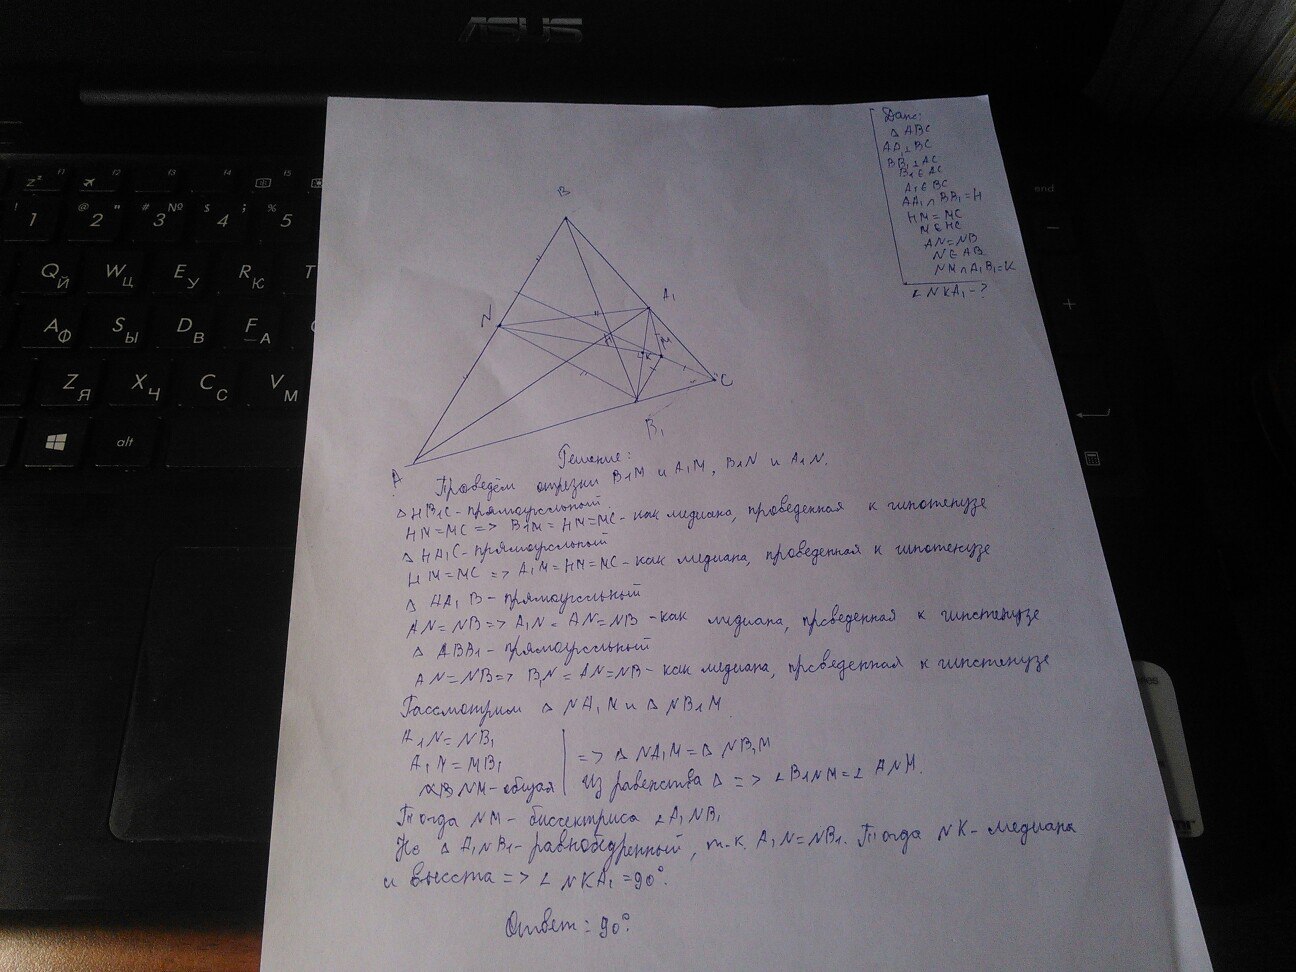 ASUS
Дано:
△ ABC
AA₁⊥BC
BB₁⊥AC
B₁∈AC
A₁∈BC
AA₁∩BB₁=H
HM=MC
M∈HC
AN=NB
N∈AB
NM∩A₁B₁=K
∠NKA₁-?
B
A₁
N
H
K
M
C
B₁
A
Решение:
Проведём отрезки B₁M и A₁M, B₁N и A₁N.
△HB₁C-прямоугольный
HM=MC=> B₁M=HM=MC-как медиана, проведенная к гипотенузе
△HA₁C-прямоугольный
HM=MC => A₁M=HM=MC-как медиана, проведенная к гипотенузе
△ AA₁B-прямоугольный
AN=NB=> A₁N=AN=NB-как медиана, проведенная к гипотенузе
△ ABB₁-прямоугольный
AN=NB=> B₁N=AN=NB-как медиана, проведенная к гипотенузе
Рассмотрим △NA₁M и △NB₁M
A₁N=NB₁
A₁M=MB₁
NM-общая
=> △NA₁M=△NB₁M
Из равенства △ => ∠B₁NM=∠A₁NM.
Тогда NM-биссектриса ∠A₁NB₁
Но △A₁NB₁-равнобедренный, т.к. A₁N=NB₁. Тогда NK-медиана
и высота => ∠NKA₁=90°.
Ответ: 90°.
z² f1
f2
f3
f4
f5
! 1
@ 2 "
# 3 №
$ 4 ;
% 5
Q Й
W Ц
E У
R К
T
A Ф
S Ы
D В
F А
Z Я
X Ч
C С
V М
alt
end